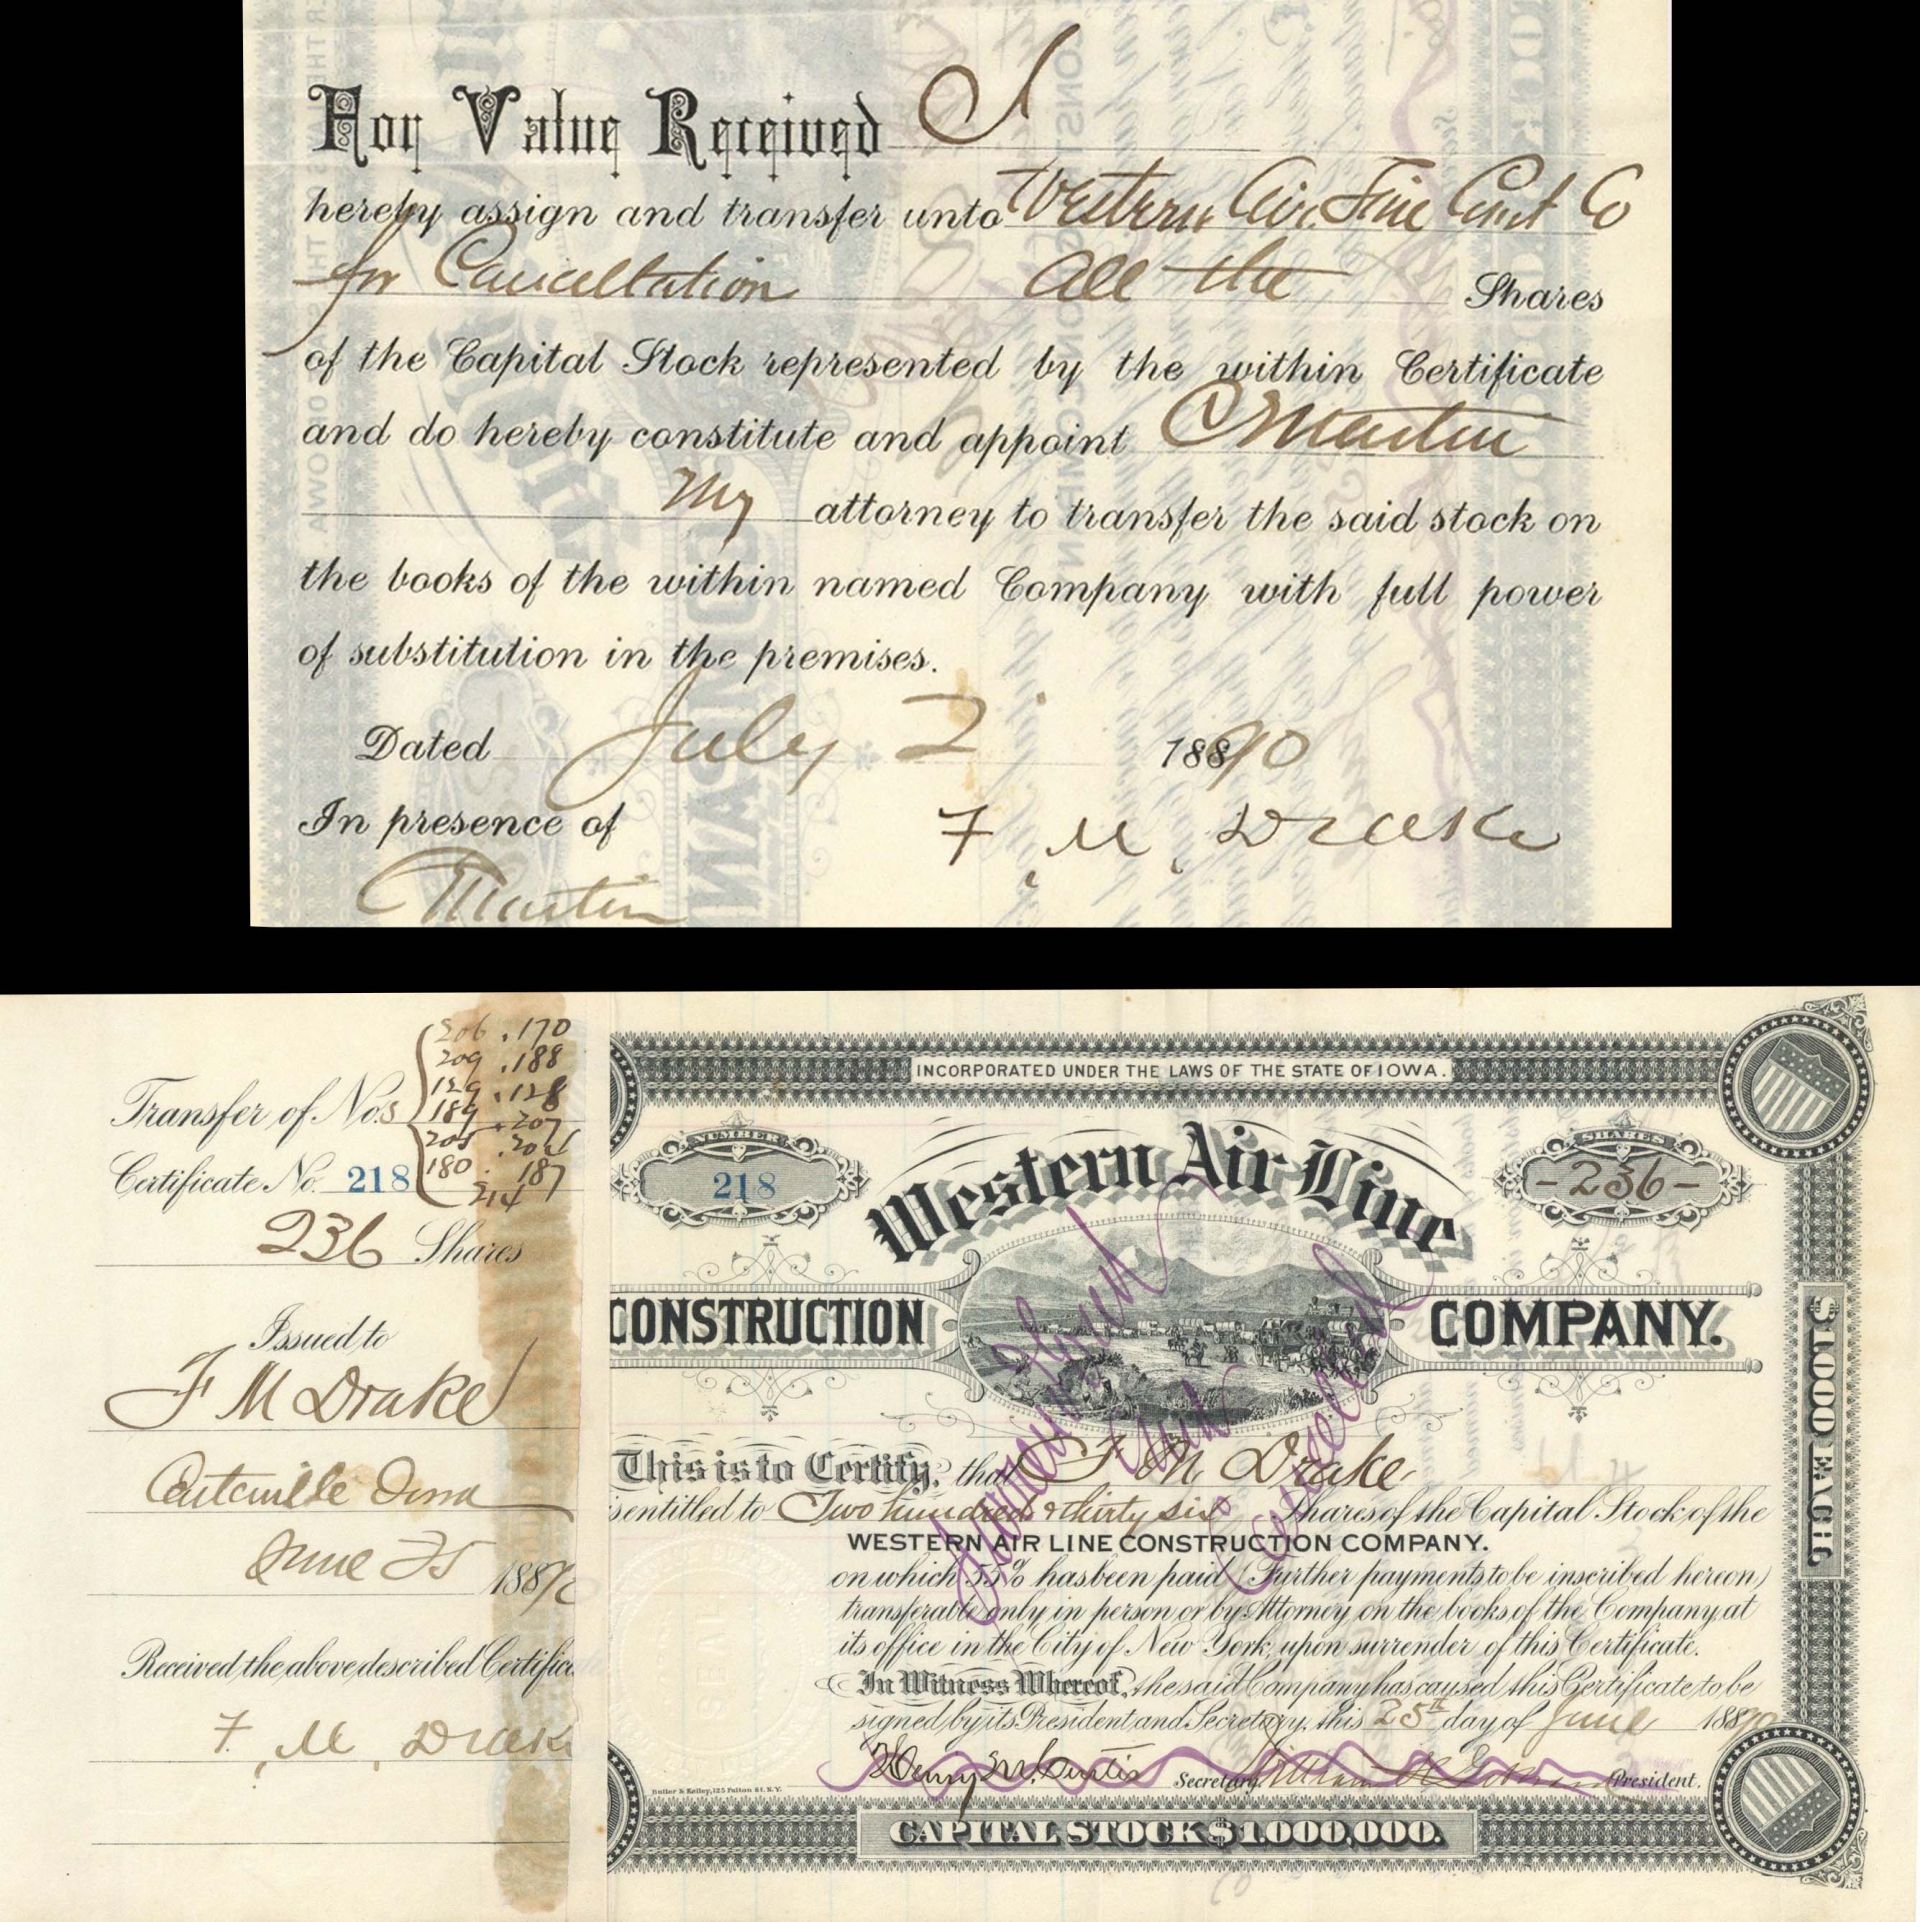 For Value Received I
hereby assign and transfer unto Western Air Line Const Co
for Cancelltation all the Shares
of the Capital Stock represented by the within Certificate
and do hereby constitute and appoint C Martin
My attorney to transfer the said stock on
the books of the within named Company with full power
of substitution in the premises.
Dated July 2 18890
In presence of
F. M. Drake
C Martin
206 . 170
209 . 188
129 . 128
Transfer of Nos 189 . 207
205 . 204
Certificate No. 218 180 . 187
214
236 Shares
Issued to
F M Drake
Centerville Iowa
June 25 18890
Received the above described Certific
F. M. Drake
INCORPORATED UNDER THE LAWS OF THE STATE OF IOWA.
NUMBER
218
SHARES
-236-
Western Air Line
CONSTRUCTION COMPANY.
This is to Certify, that F M Drake
is entitled to Two hundred & thirty six Shares of the Capital Stock of the
WESTERN AIR LINE CONSTRUCTION COMPANY.
on which 55% has been paid (Further payments to be inscribed hereon)
transferable only in person or by Attorney on the books of the Company at
its office in the City of New York, upon surrender of this Certificate.
In Witness Whereof, the said Company has caused this Certificate to be
signed by its President and Secretary, this 25th day of June 18890
Henry M. Curtis Secretary. William President.
Butler & Kelley, 125 Fulton St. N.Y.
CAPITAL STOCK $1,000,000.
$1,000 EACH.
SEAL